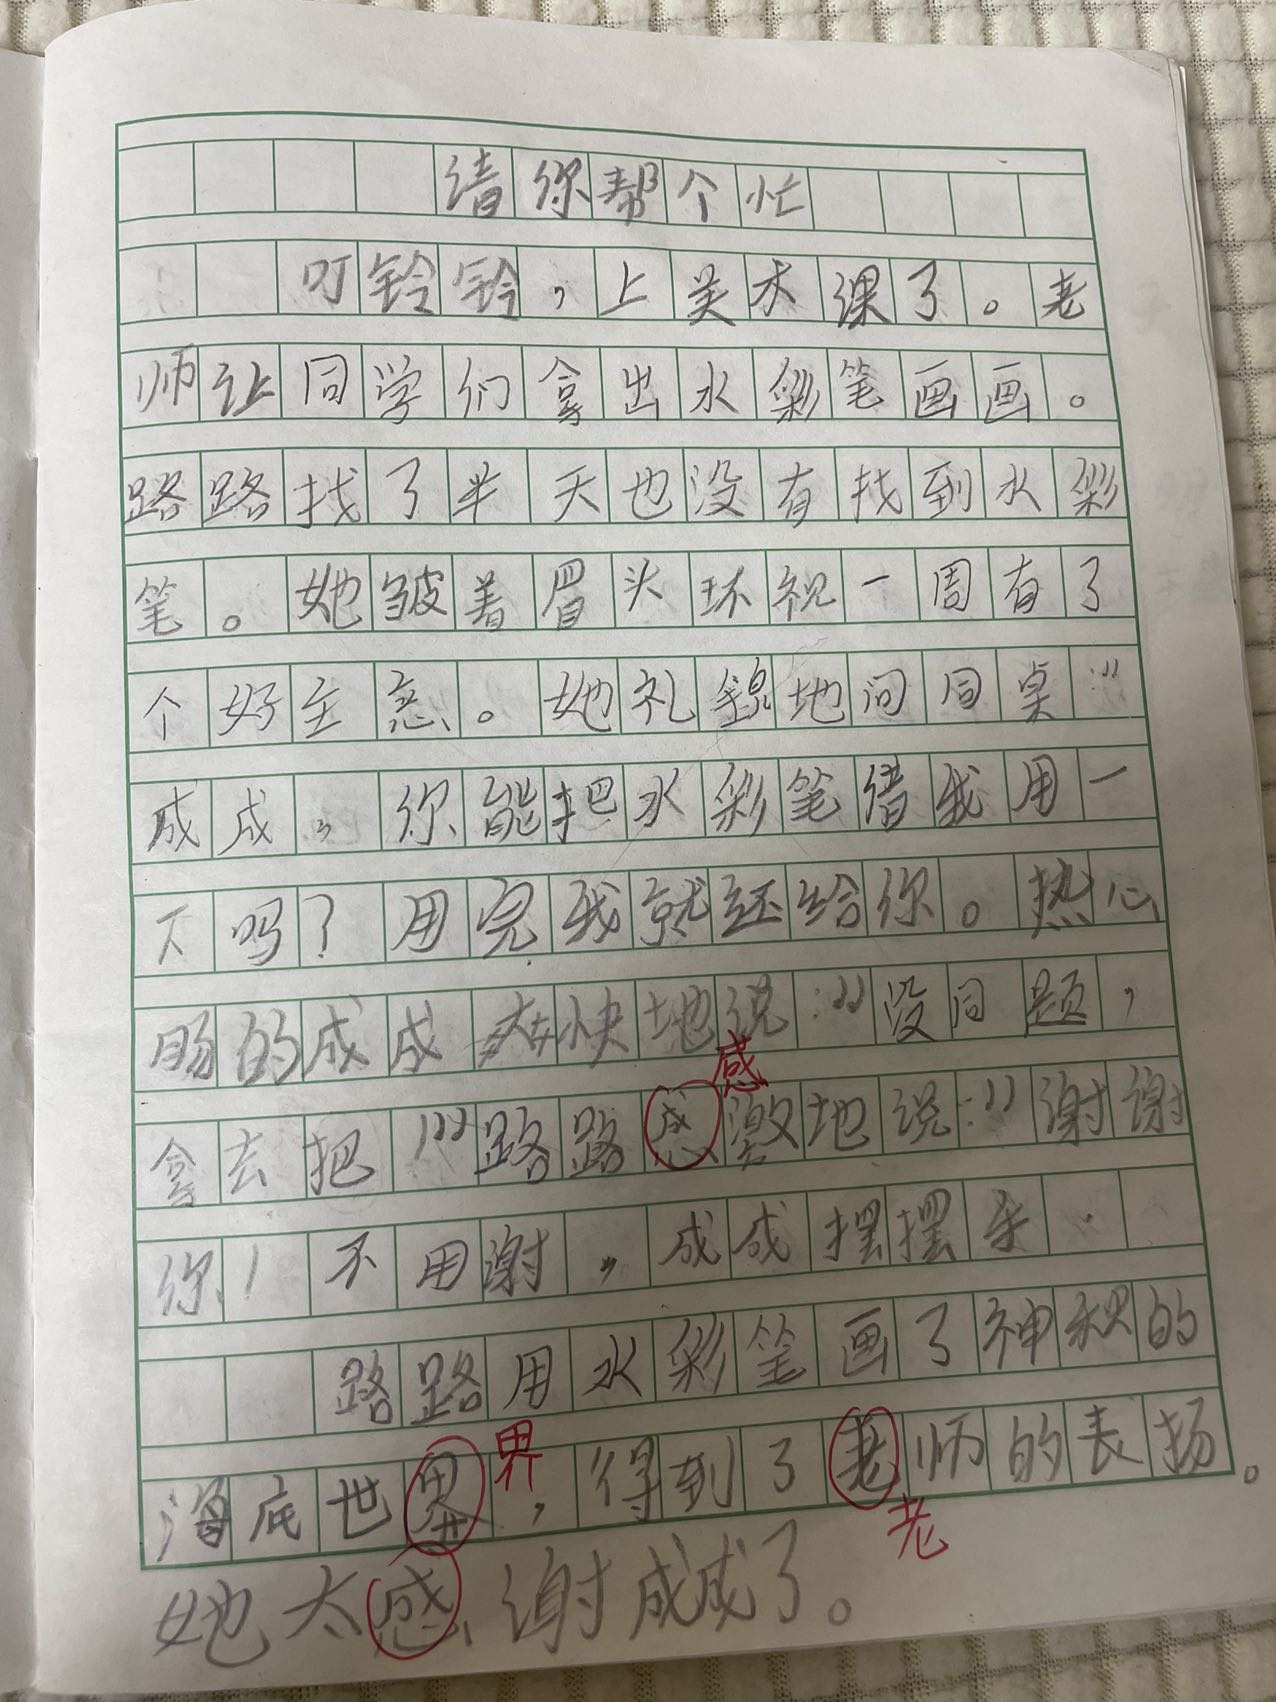 请你帮个忙
叮铃铃，上美术课了。老
师让同学们拿出水彩笔画画。
路路找了半天也没有找到水彩
笔。她皱着眉头环视一周有了
个好主意。她礼貌地问同桌：“
成成，你能把水彩笔借我用一
下吗？用完我就还给你。热心
肠的成成爽快地说：“没问题，
拿去把！”路路感激地说：“谢谢
感
你！不用谢，成成摆摆手.
路路用水彩笔画了神秘的
海底世界，得到了老师的表扬。
界
老
她太感谢成成了。